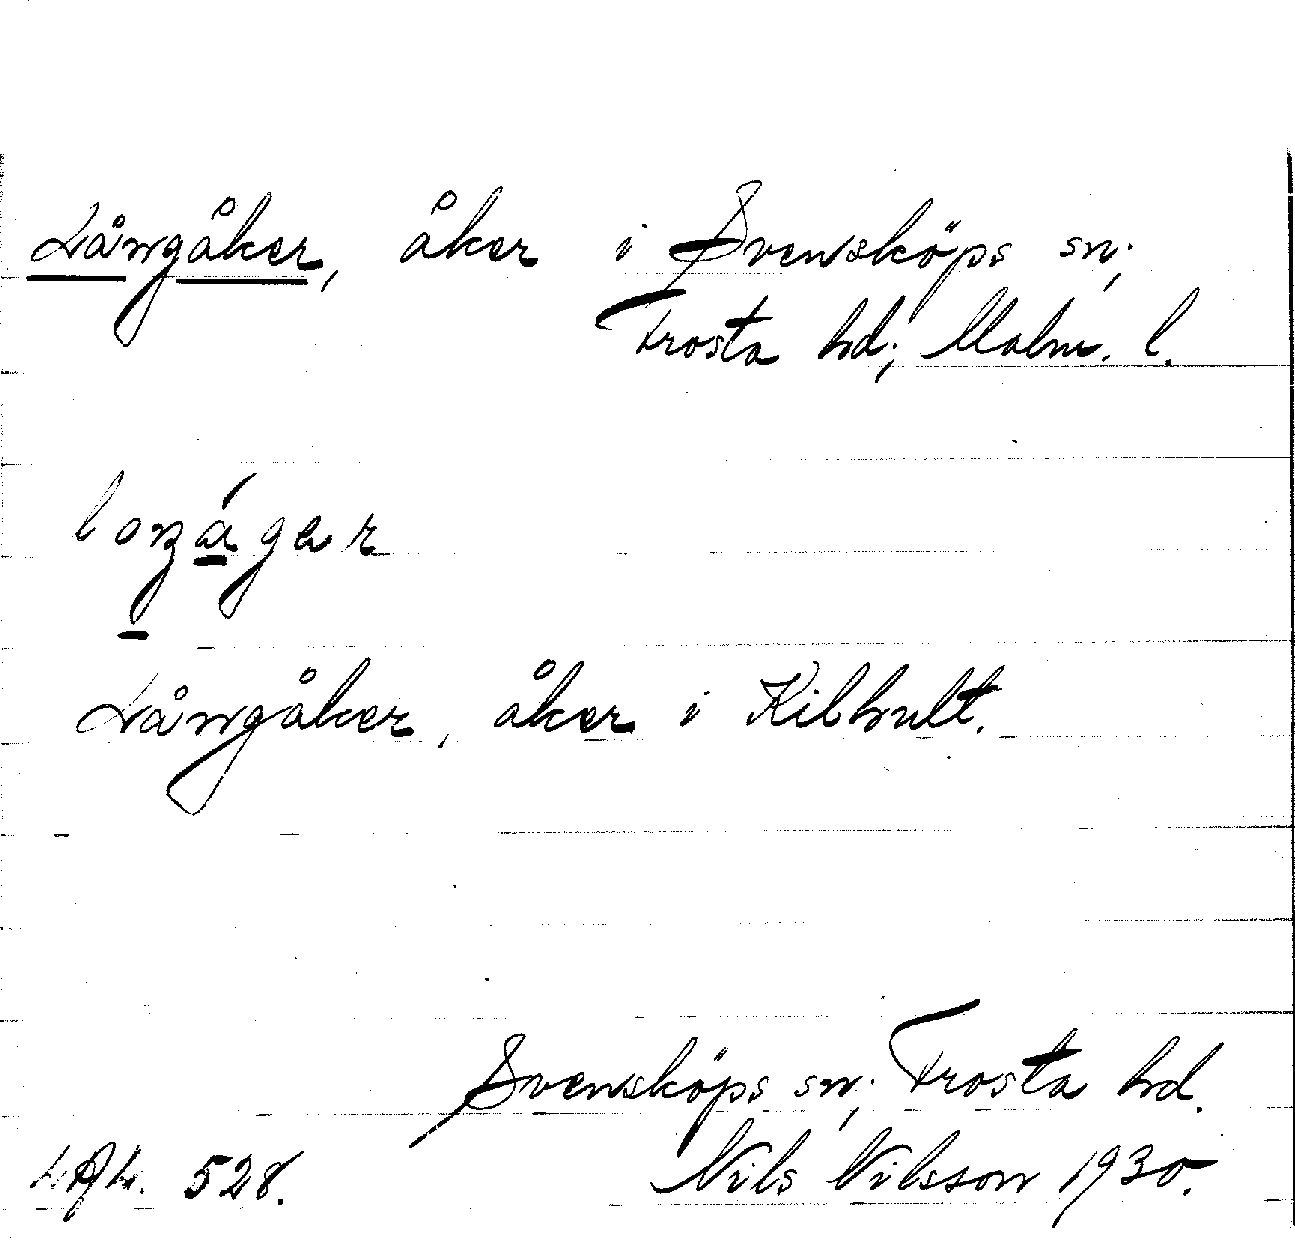 Långåker, åker i Svensköps sn;
Frosta hd; Malm. l.
loŋágar
Långåker, åker i Kilhult.
Svensköps sn; Frosta hd.
Nils Nilsson 1930.
528.